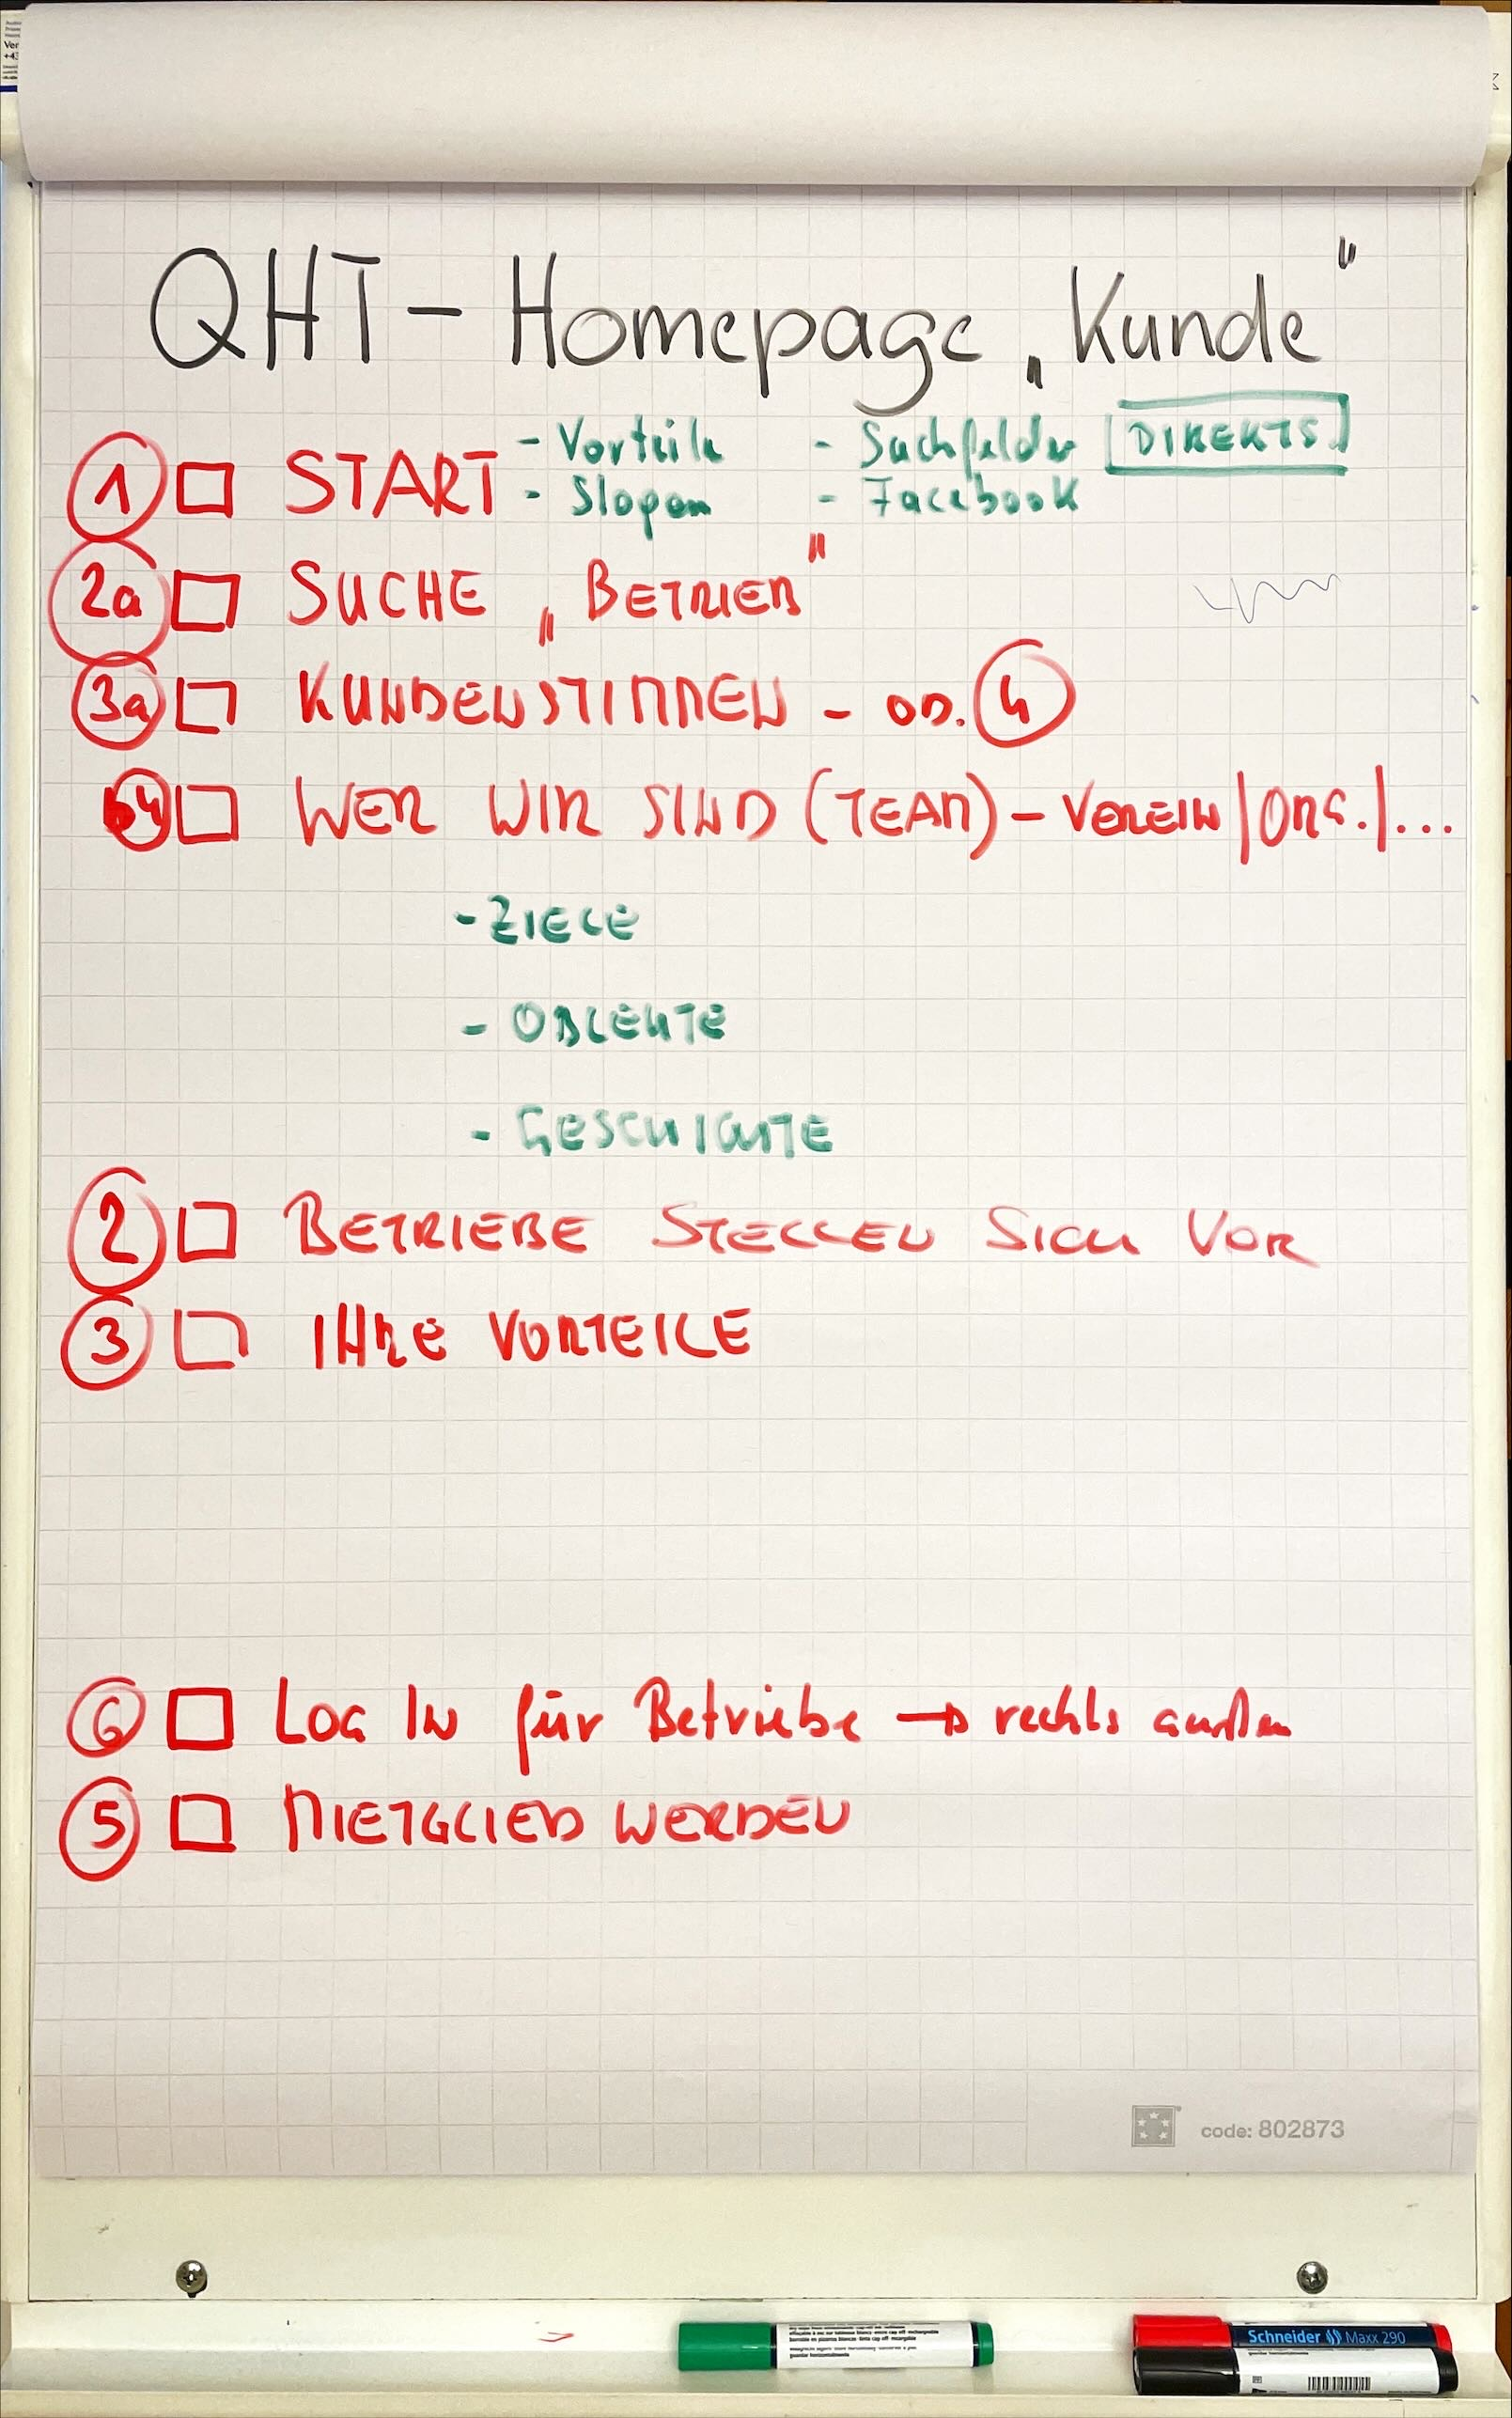 QHT - Homepage „Kunde“
① START - Vorteile - Suchfelder DIREKTS.
- Slogan - Facebook
2a SUCHE „BETRIEB“
3a KUNDENSTIMMEN - OD. 4
4 WER WIR SIND (TEAM) - VEREIN | ORG. | ...
- ZIELE
- OBLEUTE
- GESCHICHTE
2 BETRIEBE STELLEN SICH VOR
3 IHRE VORTEILE
6 LOG IN für Betriebe → rechts außen
5 MIETGLIED WERDEN
code: 802873
Schneider Maxx 290